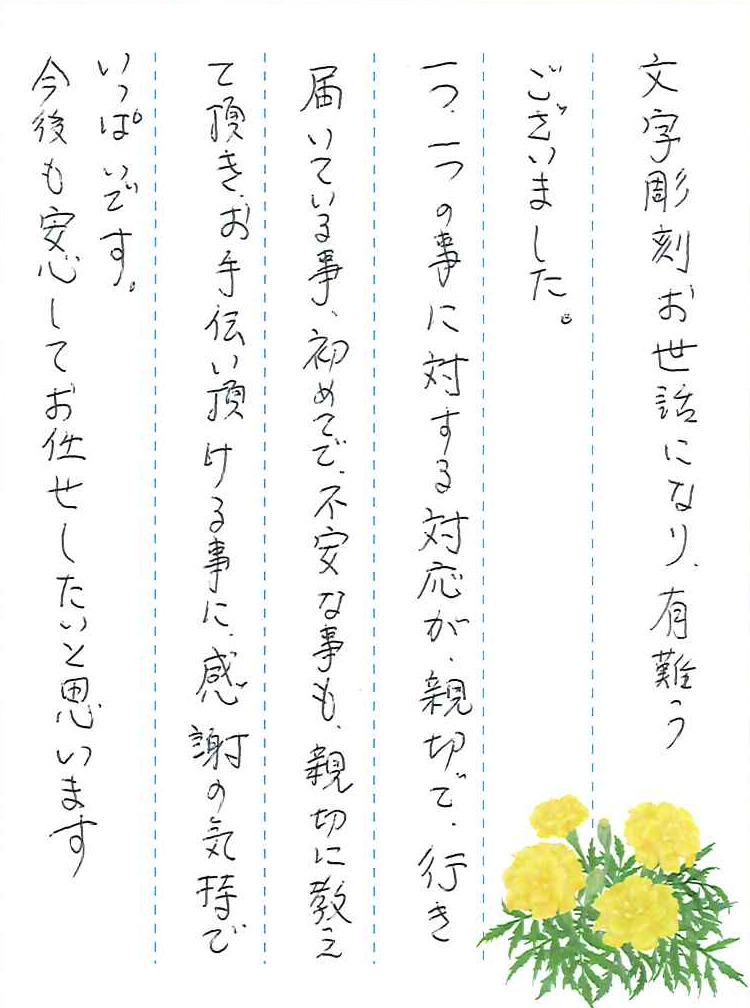 文字彫刻お世話になり、有難う
ございました。
一つ、一つの事に対する対応が、親切で、行き
届いている事、初めてで、不安な事も、親切に教え
て頂き、お手伝い頂ける事に、感謝の気持で
いっぱいです。
今後も安心してお任せしたいと思います